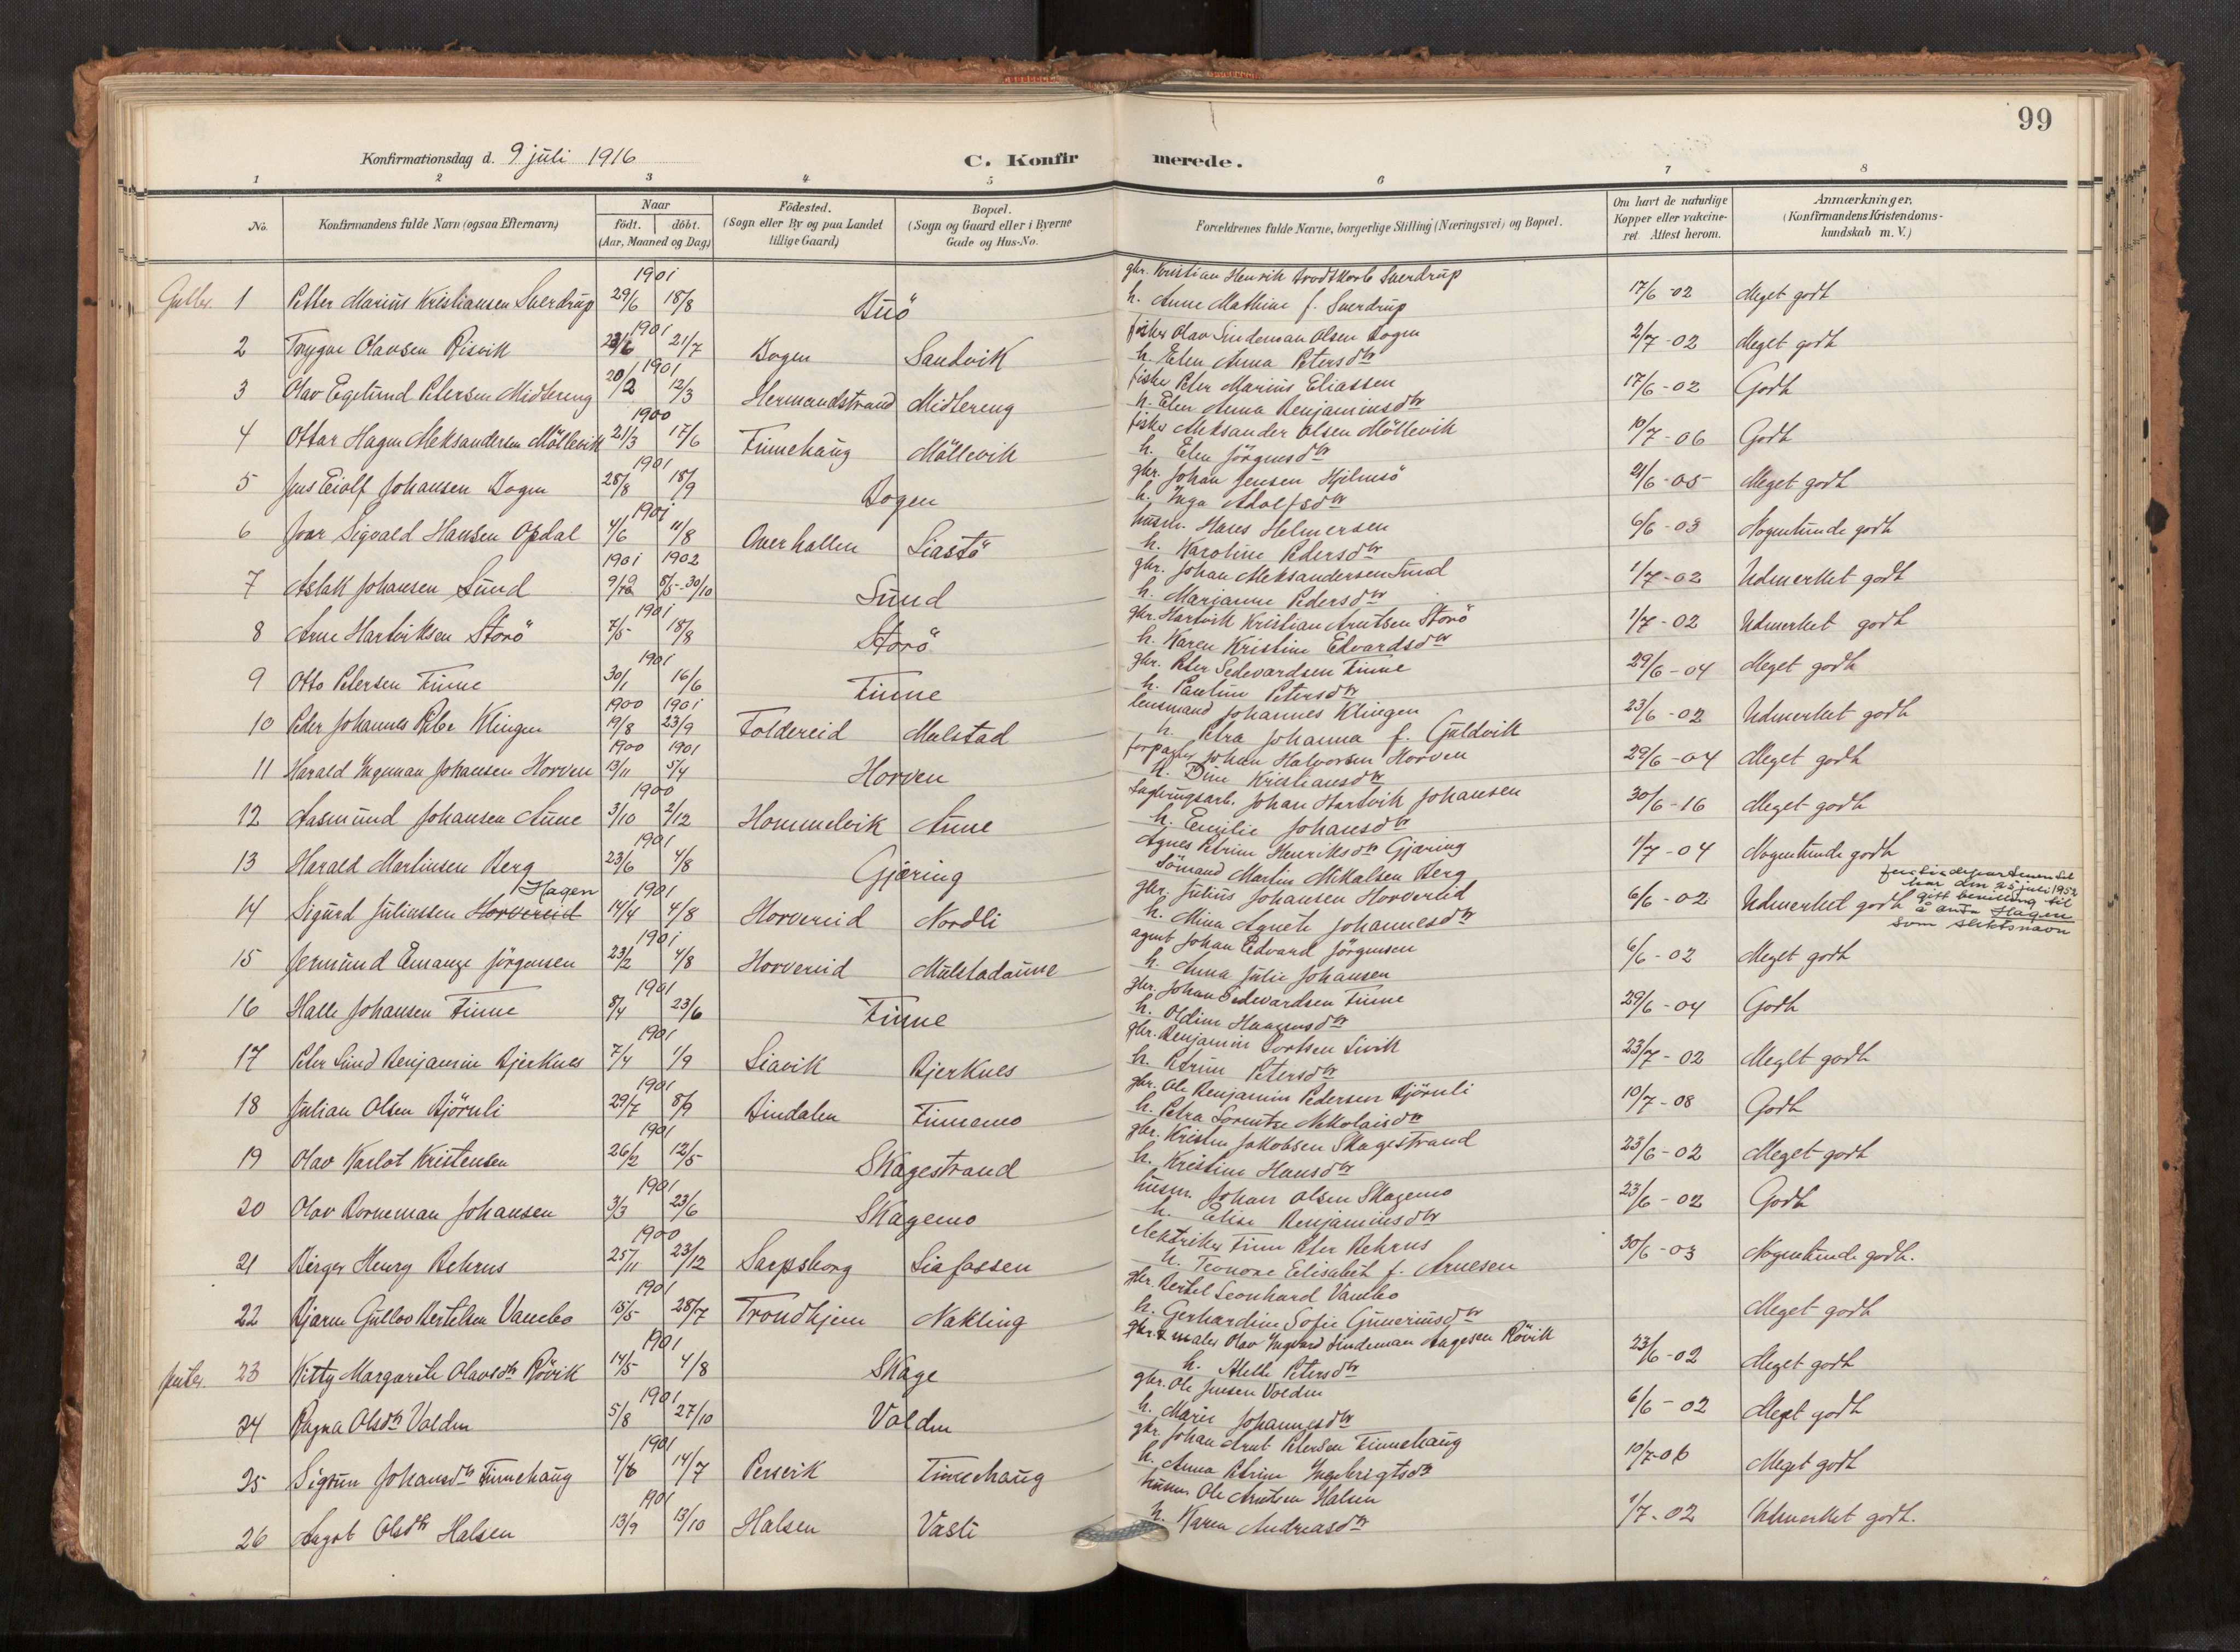 99
Konfirmationsdag d. 9 juli 1916
C. Konfirmerede.
1 2 3 4 5 6 7 8
No. Konfirmandens fulde Navn (ogsaa Efternavn) Naar födt. döbt. (Aar, Maaned og Dag) Födested. (Sogn eller By og paa Landet tillige Gaard) Bopæl. (Sogn og Gaard eller i Byerne Gade og Hus-No. Forældrenes fulde Navne, borgerlige Stilling (Næringsvei) og Bopæl. Om havt de naturlige Kopper eller vakcineret. Attest herom. Anmærkninger. (Konfirmandens Kristendomskundskab m. V.)
Gutter. 1 Petter Marius Kristiansen Sverdrup 1901 29/6 18/8 Buö gbr. Kristian Henrik Brodtkorb Sverdrup
h. Anne Mathine f. Sverdrup 17/6 -02 Meget godt
2 Trygve Olavsen Risvik 1901 23/6 21/7 Bogen Sandvik fisker Olav Lindeman Olsen Bogen
h. Elen Anna Petersdtr 2/7 -02 Meget godt
3 Olav Egelund Petersen Midtereng 1901 20/2 12/3 Hermandstrand Midtereng fisker Peter Marius Eliassen
h. Elen Anna Benjaminsdtr 17/6 -02 Godt
4 Ottar Hagen Aleksandersen Möllevik 1900 21/3 17/6 Finnehaug Möllevik fisker Aleksander Olsen Möllevik
h. Elen Jörgensdtr 10/7 -06 Godt
5 Jens Eiolf Johansen Bogen 1901 28/8 18/9 Bogen gbr. Johan Jensen Hjelmsö
h. Inga Adolfsdtr 21/6 -05 Meget godt
6 Ivar Sigvald Hansen Opdal 1901 4/6 11/8 Overhallen Liastö husm. Hans Helmersen
h. Karoline Pedersdtr 6/6 -03 Nogenlunde godt
7 Aslak Johansen Sund 1901 1902 9/12 8/5-30/10 Sund gbr. Johan Aleksandersen Sund
h. Marianne Pedersdtr 1/7 -02 Udmerket godt
8 Arne Hartviksen Storö 1901 7/5 18/8 Storö gbr. Hartvik Kristian Arntsen Storö
h. Karen Kristine Edvardsdtr 1/7 -02 Udmerket godt
9 Otto Petersen Finne 1901 30/1 16/6 Finne gbr. Peter Sedevardsen Finne
h. Pauline Petersdtr 29/6 -04 Meget godt
10 Peder Johannes Ribe Klingen 1900 1901 19/8 23/9 Foldereid Mulstad lensmand Johannes Klingen
h. Petra Johanna f. Guldvik 23/6 -02 Udmerket godt
11 Harald Ingeman Johansen Horven 1900 1901 13/11 5/4 Horven forpagter Johan Halvorsen Horven
h. Dine Kristiansdtr 29/6 -04 Meget godt
12 Aasmund Johansen Aune 1900 3/10 2/12 Hommelvik Aune Sagbrugsarb. Johan Hartvik Johansen
h. Emilie Johansdtr 30/6 -16 Meget godt
13 Harald Martinsen Berg 1901 23/6 4/8 Gjæring Agnes Petrine Henriksdtr Gjæring
Sömand Martin Mikalsen Berg 1/7 -04 Nogenlunde godt
14 Sigurd Juliussen Horvereid Hagen 1901 14/4 4/8 Horvereid Nordli gbr. Julius Johansen Horvereid
h. Mina Agnete Johannesdtr 6/6 -02 Udmerket godt
Justisdepartementet har den 25 juli 1952 gitt bevilling til å anta Hagen som slektsnavn
15 Jermund Emange Jörgensen 1901 23/2 4/8 Horvereid Mulstadaune agent Johan Edvard Jörgensen
h. Anna Julie Johansen 6/6 -02 Meget godt
16 Halle Johansen Finne 1901 8/4 23/6 Finne gbr. Johan Sedevardsen Finne
h. Oldine Haagensdtr 29/6 -04 Godt
17 Peter Lund Benjamin Bjerknes 1901 7/4 1/9 Liavik Bjerknes gbr. Benjamin Sivik
h. Petrine Petersdtr 23/7 -02 Meget godt
18 Julian Olsen Björnli 1901 29/7 8/9 Bindalen Finnemo gbr. Ole Benjamin Pedersen Björnli
h. Petra Lorentze Nikolaisdtr 10/7 -08 Godt
19 Olav Karlot Kristensen 1901 26/2 12/5 Skagestrand gbr. Kristen Jakobsen Skagestrand
h. Kristine Hansdtr 23/6 -02 Meget godt
20 Olav Borneman Johansen 1901 3/3 23/6 Skagemo husm. Johan Olsen Skagemo
h. Elise Benjaminsdtr 23/6 -02 Godt
21 Birger Henry Behrns 1900 25/11 23/12 Sarpsborg Liafossen elektriker Finn Peter Behrns
h. Teonore Elisabet f. Arnesen 30/6 -03 Nogenlunde godt.
22 Bjarne Gullov Bertelsen Vambo 1901 15/5 28/7 Trondhjem Nakling gbr. Bertel Leonhard Vambo
h. Gerhardine Sofie Guneriusdtr Meget godt
Piker. 23 Kitty Margarete Olavsdtr Rövik 1901 14/5 4/8 Skage gbr. & maler Olav Ingvard Lindeman Aagesen Rövik
h. Alette Petersdtr 23/6 -02 Meget godt
24 Ragna Olsdtr Volden 1901 5/8 27/10 Volden gbr. Ole Jensen Volden
h. Marie Johannesdtr 6/6 -02 Meget godt
25 Sigrun Johansdtr Finnehaug 1901 4/6 14/7 Persvik Finnehaug gbr. Johan Arnt Petersen Finnehaug
h. Anna Petrine Ingebrigtsdtr 10/7-06 Meget godt
26 Aagot Olsdtr Halsen 1901 13/9 13/10 Halsen Vasli husm. Ole Arntsen Halsen
h. Karen Andreasdtr 1/7 -02 Udmerket godt.